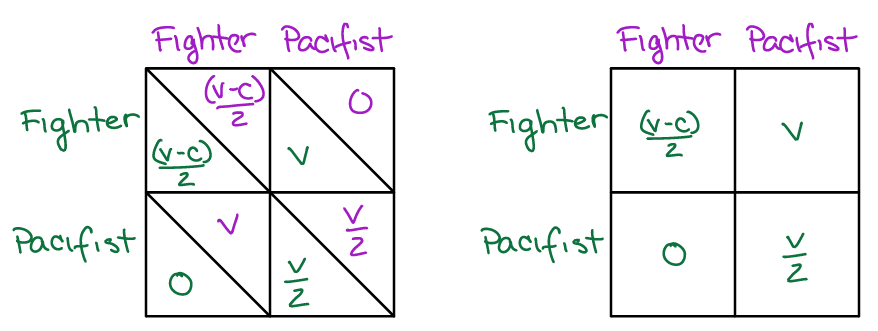 Fighter Pacifist
Fighter (v-c)/2 (v-c)/2 0 v
Pacifist v 0 v/2 v/2
Fighter Pacifist
Fighter (v-c)/2 v
Pacifist 0 v/2